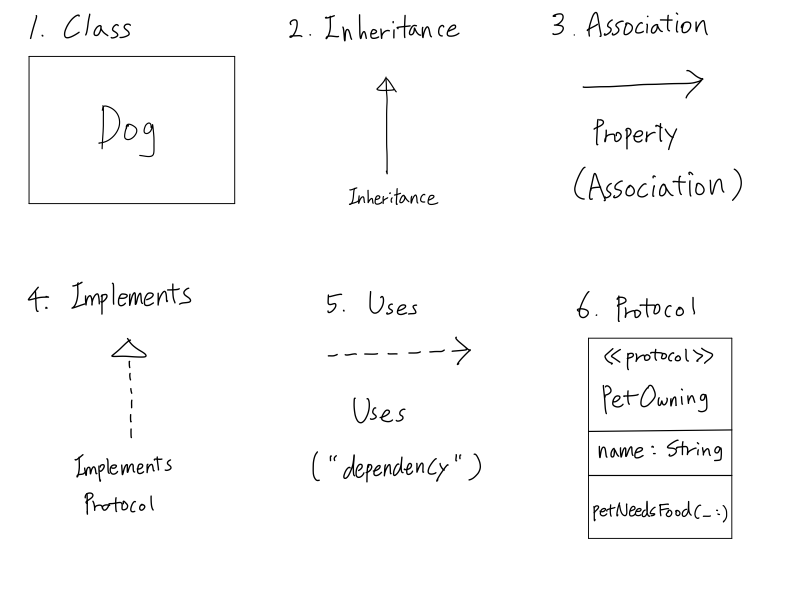 1. Class
Dog
2. Inheritance
Inheritance
3. Association
Property
(Association)
4. Implements
Implements
Protocol
5. Uses
Uses
("dependency")
6. Protocol
<<protocol>>
PetOwning
name: String
petNeedsFood(_:)